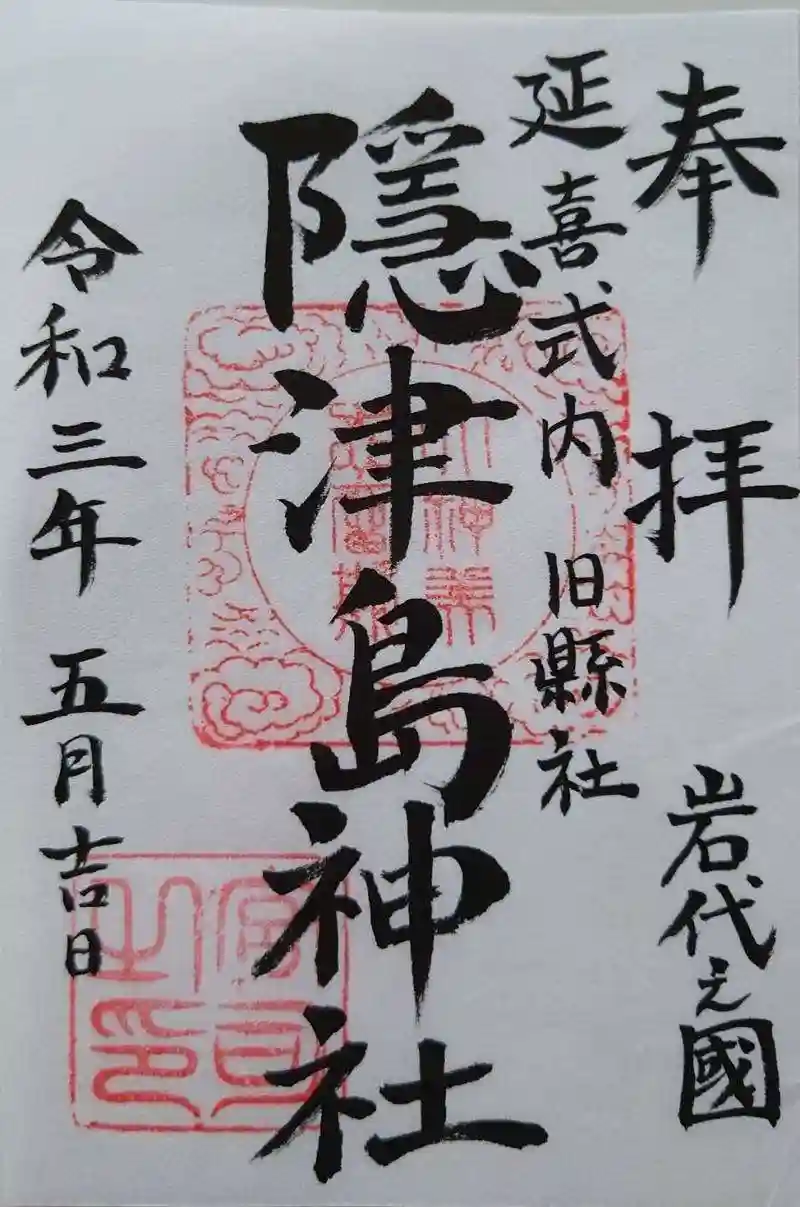 奉拝
岩代之國
延喜式内 旧縣社
隱津島神社
令和三年 五月吉日